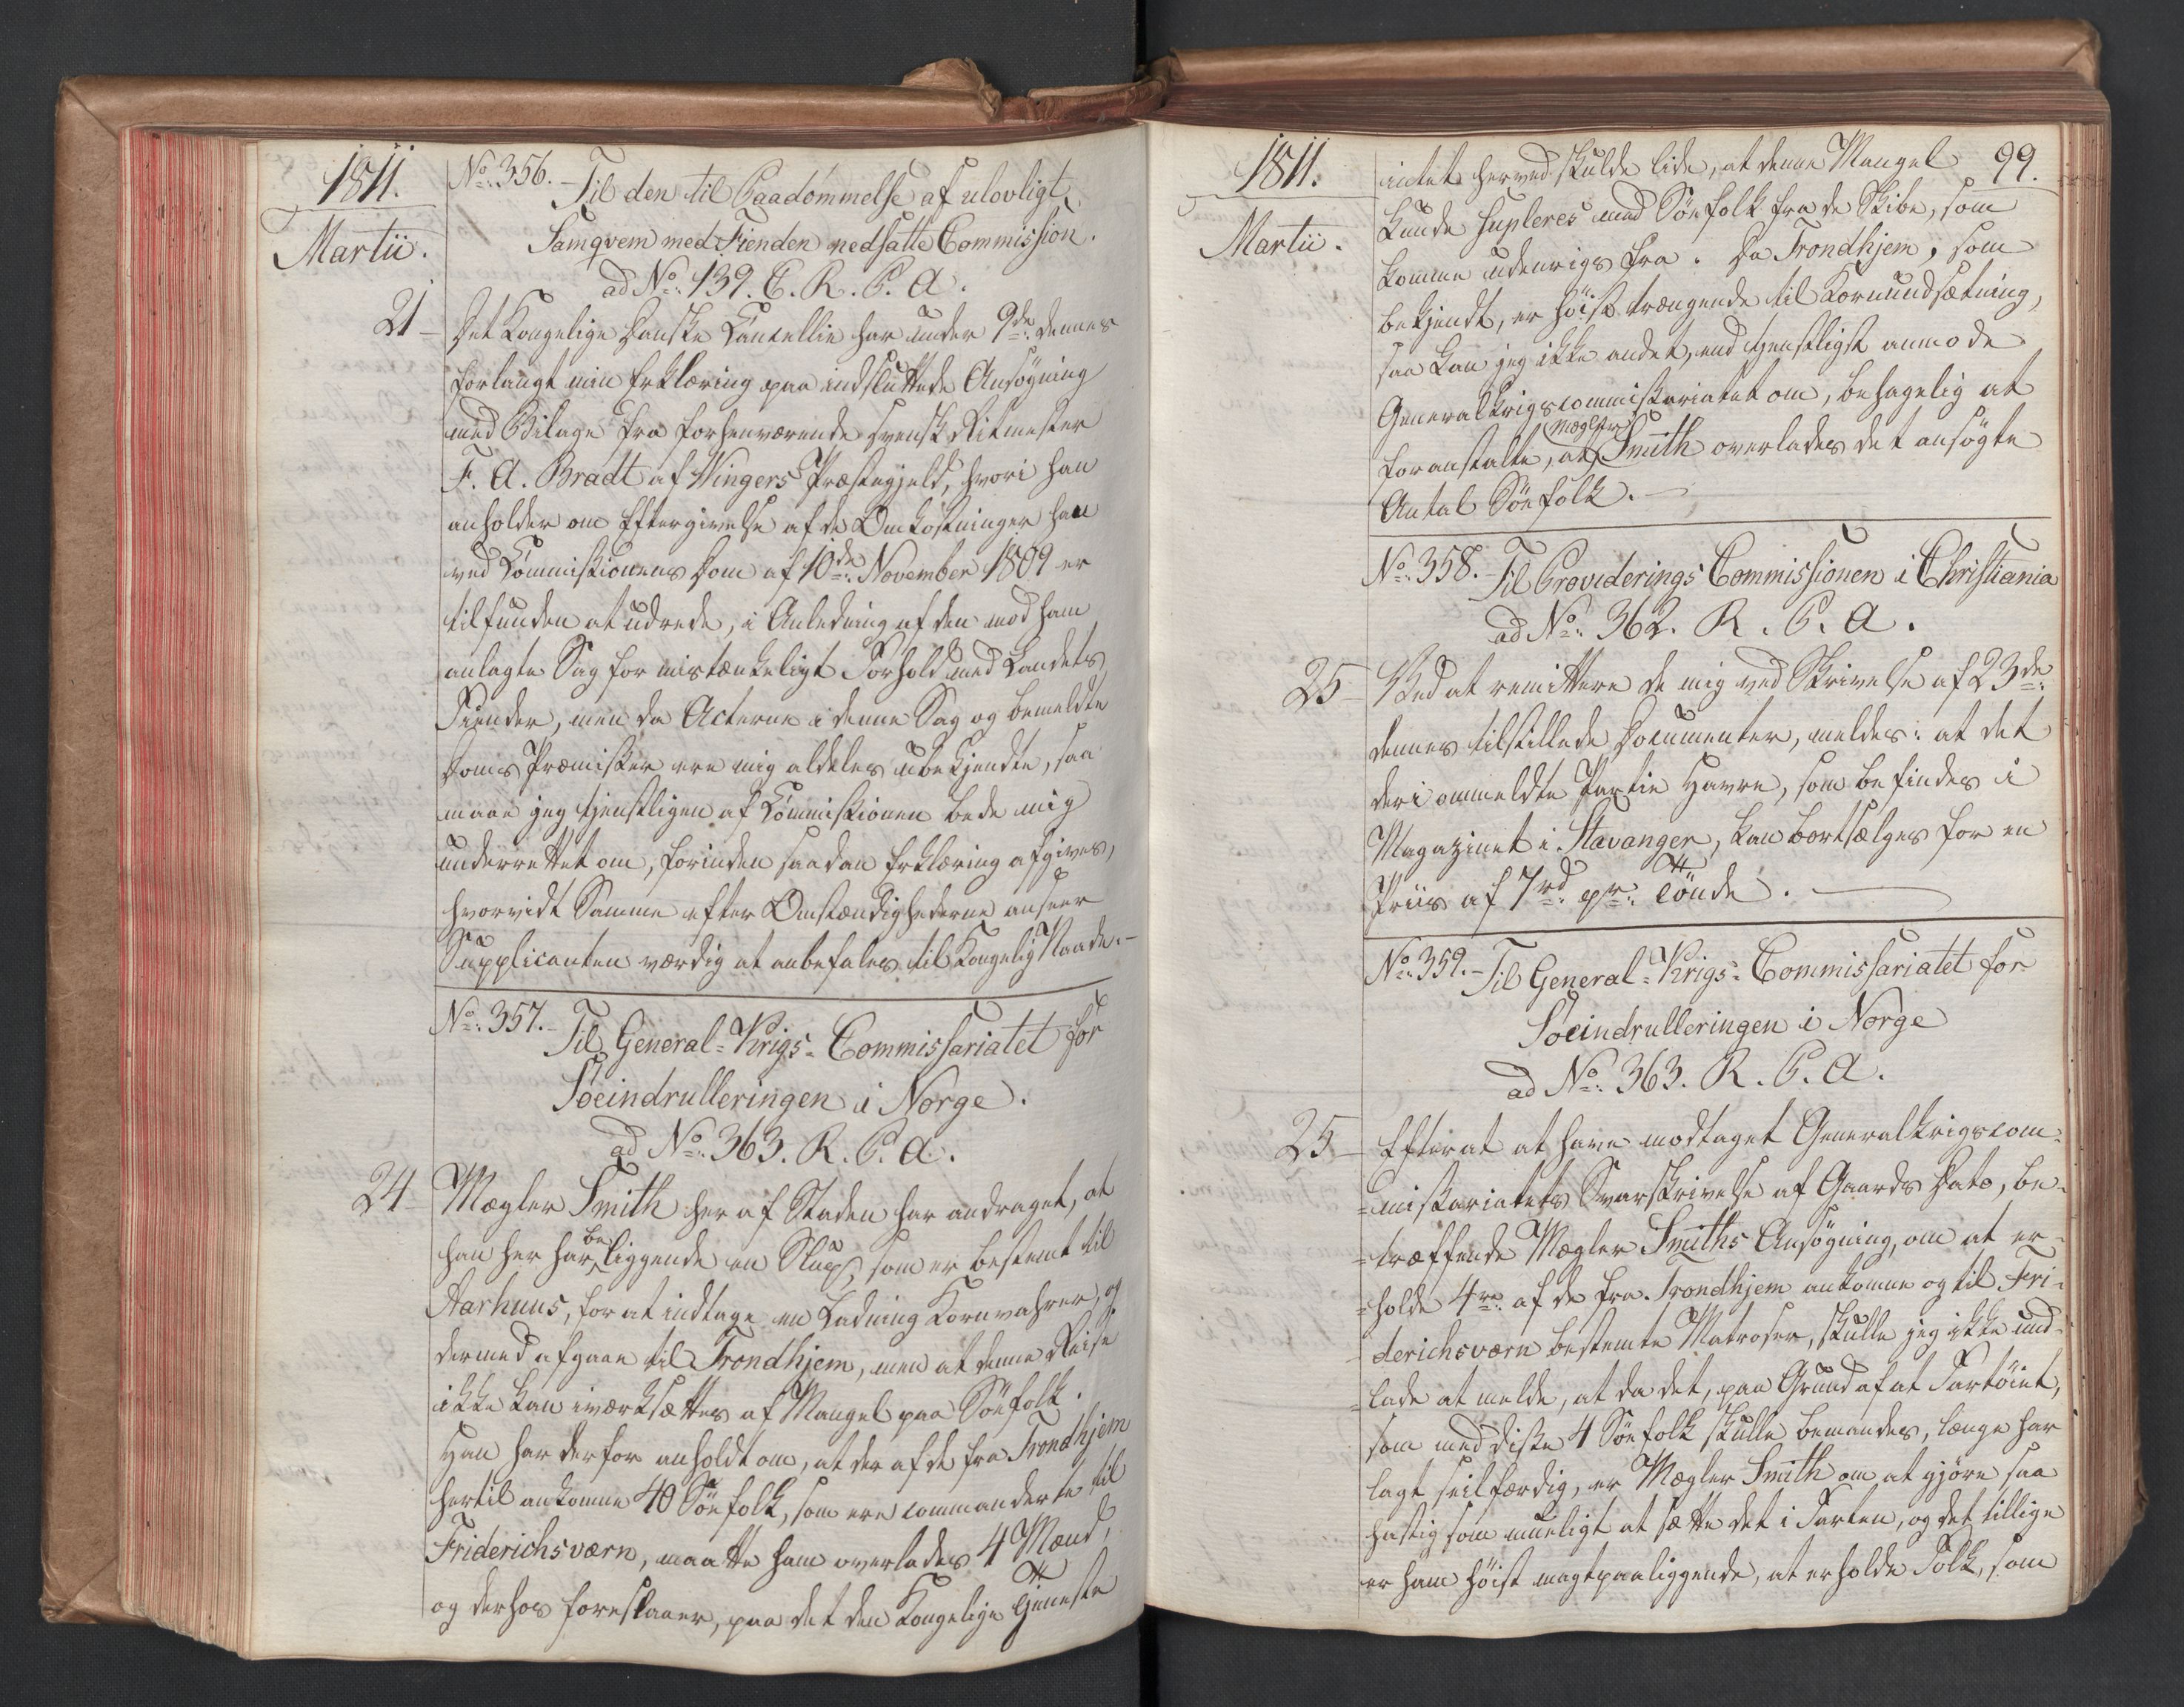 1811.
Martii.
No: 356. – Til den til Paadømmelse af ulovligt
Samqvem med Fienden nedsatte Commission.
ad No: 139. C. R. P. A.
21 – Det Kongelige Danske Cancellie har under 9de: dennes
forlangt min Erklæring paa indsluttede Ansøgning
med Bilage fra forhenværende svensk Ritmester
F. A. Bradt af Wingers Præstegjeld, hvori han
anholder om Eftergivelse af de Omkostninger han
ved Commissionens Dom af 10de: November 1809 er
tilfunden at udrede, i Anledning af den mod ham
anlagte Sag for mistænkeligt Forhold med Landets
Fiender, men da Acterne i denne Sag og bemeldte
Doms Præmisser ere mig aldeles ubekjendte, saa
maae jeg tjenstligen af Commissionen bede mig
underrettet om, forinden saadan Erklæring afgives,
hvorvidt Samme efter Omstændighederne anseer
Supplicanten værdig at anbefales til Kongelig Naade. –
No: 357. – Til General-Krigs-Commissariatet for
Søeindrulleringen i Norge.
ad No: 363. R. P. A.
24 – Mægler Smith her af Staden har andraget, at
han her har beliggende en Slup, som er bestemt til
Aarhuus, for at indtage en Ladning Kornvahrer, og
dermed afgaae til Trondhjem, men at denne Reise
ikke kan iværksættes af Mangel paa Söefolk.
Han har derfor anholdt om, at der af de fra Trondhjem
hertil ankomne 40 Söefolk, som ere commanderte til
Friderichsværn, maatte ham overlades 4 Mænd,
og derhos foreslaaer, paa det den Kongelige Tjeneste
1811.
99.
Martii.
intet herved skulde lide, at denne Mangel
kunde supleres med Söefolk fra de Skibe, som
komme udenrigs fra. Da Trondhjem, som
bekjendt, er höist trængende til Kornundsætning,
saa kan jeg ikke andet, end tjenstligst anmode
Generalkrigscommissariatet om, behagelig at
foranstalte, at Mægler Smith overlades det ansögte
Antal Söefolk. –
No: 358. – Til Providerings Commissionen i Christiania
ad No: 362. R. P. A.
25 – Ved at remittere de mig ved Skrivelse af 23de:
dennes tilstillede Documenter, meldes: at det
deri ommeldte Partie Havre, som befindes i
Magazinet i Stavanger, kan bortsælges for en
Priis af 7rd: pr: Tönde. –
No: 359. – Til General-Krigs-Commissariatet for
Söeindrulleringen i Norge
ad No: 363. R. P. A.
25 – Efterat at have modtaget Generalkrigscom-
-missariatets Svarskrivelse af Gaards Dato, be-
-træffende Mægler Smiths Ansögning, om at er-
-holde 4re: af de fra Trondhjem ankomne og til Fri-
-derichsværn bestemte Matroser, skulle jeg ikke und-
-lade at melde, at da det, paa Grund af at Fartöiet,
som med disse 4 Söefolk skulle bemandes, længe har
lagt seilfærdig, er Mægler Smith om at gjöre saa
hastig som mueligt at sætte det i Farten, og det tillige
er ham höist magtpaaliggende, at erholde Folk, som